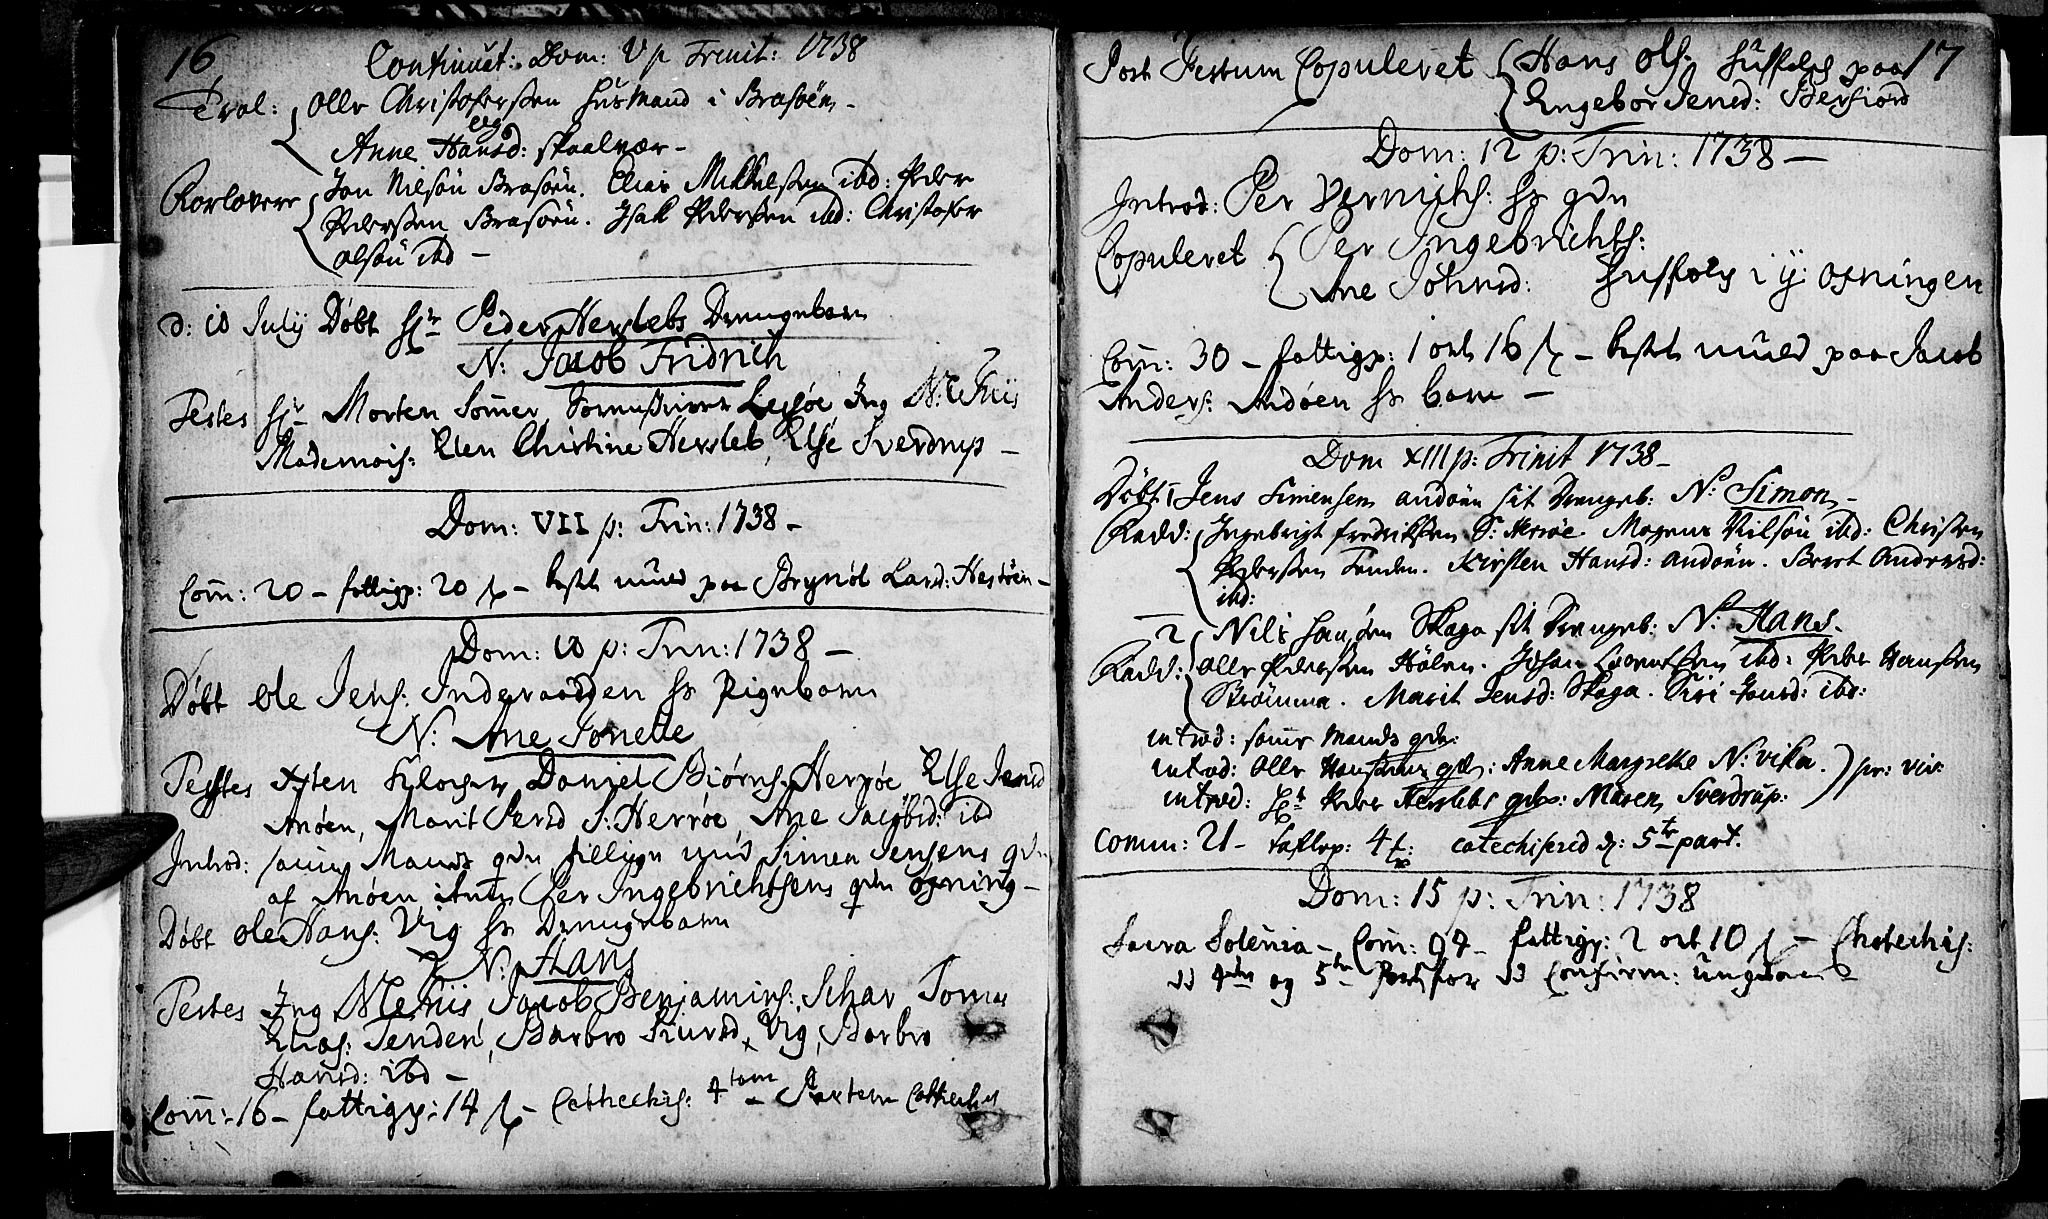 16
Continuat: Dom: V p Trinit: 1738
Trol: Olle Christophersen Husmand i Brasöen -
Anne Hansd: skaalvær -
Forlovere Jon Nilsön Brasöen. Elias Mikkelsen ibd: Peder
Pedersen Brasöen. Isak Pedersen ibd: Christofer
olsön ibd -
d: 10 July Döbt Hr Peder Herslebs Drengebarn
N: Jacob Fridrich
Testes Hr Morten Somer, Sorenskriver Lessöe, Jng N: Friis
Mademois: Elen Christine Hersleb, Else Sverdrup -
Dom: VII p: Trin: 1738 -
Com: 20 - fattigp: 20 ſ - besk: muld paa Brynöl Lard: Hestöen -
Dom: 10 p: Trin: 1738 -
Döbt Ole Jens: Inderaadden hs Pigebarn
N: Ane Jonette
Testes Daniel Biörns: Herröe, Else Jensd
Anöen, Marit Persd S: Herröe, Ane Jacobsd: ibd
Introd: samme Mands qde Simen Jensens qde
af Anöen, Per Ingebrichtsens qde opning -
Döbt Ole Hans: Vig hs Drengebarn
N: Hans
Testes Jng Jacob Benjamins: Tomas
Elias: Tenden, Barbro Siursd Vig, Barbro
Hansd: ibd -
Com: 16 - fattigp: 14 ſ - Cathechis: 4 tam Partem
17
Post Festum Copuleret Hans Ols: Husfolck paa
Engebor Jensd: Belfiord
Dom: 12 p: Trin: 1738 -
Introd: Per hs qde
Copuleret Per Ingebrichts:
Ane Johnsd: Husfolck i y: opningen
Com: 30 - fattigp: 1 ort 16 ſ - besk: muld paa Jacob
Anders: Andöen hs barn -
Dom XIII p: Trinit 1738 -
Döbt: 1 Jens Simensen andöen sit Drengeb: N: Simon -
Fadd: Ingebrigt fredriksen S: Herröe. Mogens Nilsön ibd: Christen
Pedersen Tenden. Kirsten Hansd: andöen. Berit Andersd:
ibd:
2 Nils Skaga sit Drengeb: N: Hans.
Fadd: Olle Pedersen Hölen. Johan ibd: Peder Hansen
Strömma. Marit Jensd: Skaga. Siri Jonsd: ibd:
introd: samme Mands qde:
introd: Olle Hansens qde: Anne Margrethe N: vika.
introd: Hr Peder Herslebs qde: Maren Sverdrup:
Comm: 21 - taflep: 4 catechiserid d: 5te part.
Dom: 15 p: Trin: 1738
Sacra Solenia - Com: 94 - fattigp: 2 ort 10 ſ - Chatechis:
4de og 5te Part for confirm: ungdom